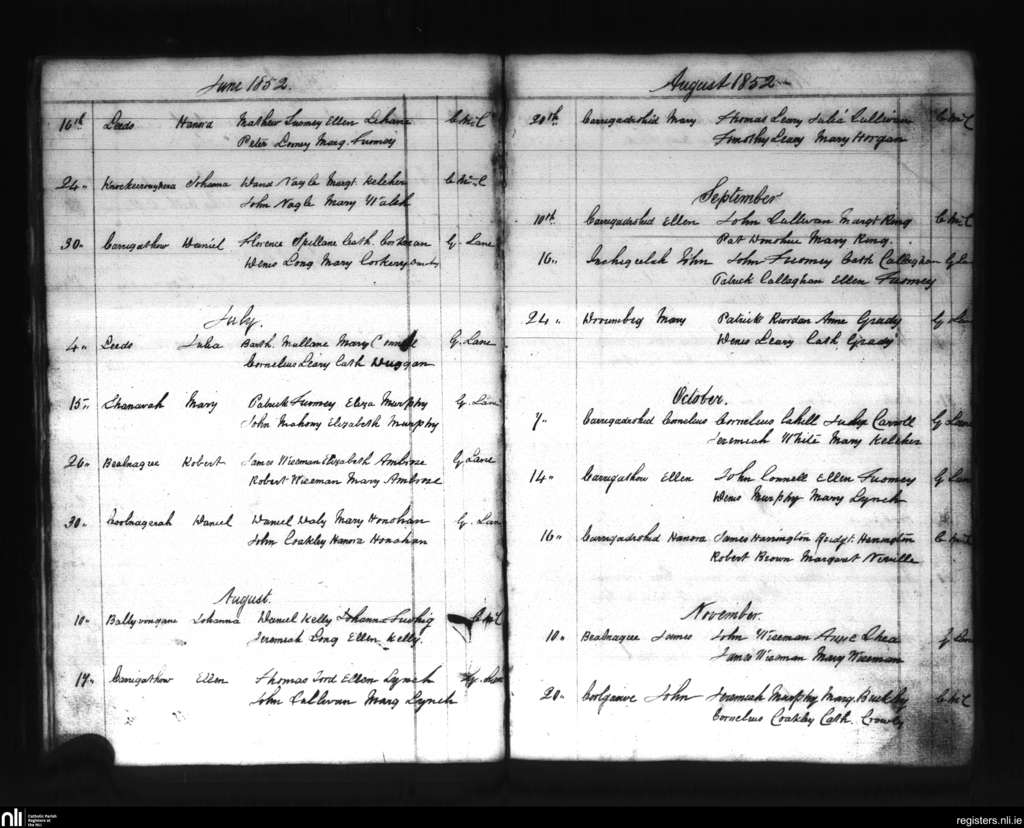 June 1852.
16th Leeds Hanora Mathew Twomey Ellen Lehane C McC
Peter Dorney Marg. Twomey
24 " Johanna David Nagle Margt Kelcher C McC
John Nagle Mary Walsh
30 " Carrigathow Daniel Florence Spillane Cath. Corkoran G. Lane
Denis Long Mary Corkerry
July.
4 " Leeds Julia Barth. Mullane Mary G. Lane
Cornelius Leary Cath Duggan
15 " Shanavah Mary Patrick Twomey Eliza Murphy G. Lane
John Mahony Elizabeth Murphy
26 " Bealnagee Robert James Wiseman Elizabeth Ambrose G Lane
Robert Wiseman Mary Ambrose
30 " Daniel Daniel Daly Mary Honohan G. Lan
John Coakley Hanora Honohan
August.
10 " Ballyvongane Johanna Daniel Kelly Johanna Twohig C McC
Jeremiah Long Ellen Kelly.
17 " Carrigathow Ellen Thomas Ford Ellen Lynch G. Lan
John Sullivan Marg Lynch
August 1852
20th Carrigadrohid Mary Thomas Leary Julia Sullivan C McC
Timothy Leary Mary Horgan
September
10th Carrigadrohid Ellen John Sullivan Margt Ring C McC
Pat Donohue Mary Ring.
16 " Inchigeelah John John Twomey Cath Callaghan G Lan
Patrick Callaghan Ellen Twomey
24 " Mary Patrick Riordan Anne Grady G Lan
Denis Leary Cath. Grady
October.
7 " Carrigadrohid Cornelius Cornelius Cahill Judy Carroll G Lane
Jeremiah White Mary Kelcher
14 " Carrigathow Ellen John Connell Ellen Twomey G Lan
Denis Murphy Mary Lynch
16 " Carrigadrohid Hanora James Harrington Bridgt. Harrington C McC
Robert Brown Margaret Neville
November.
10 " Bealnagee James John Wiseman Anne Shea G Lan
James Wiseman Mary Wiseman
20 " Coolgarve John Jeremiah Murphy Mary Buckley C McC
Cornelius Coakley Cath. Crowley
nli Catholic Parish Registers at the NLI
registers.nli.ie